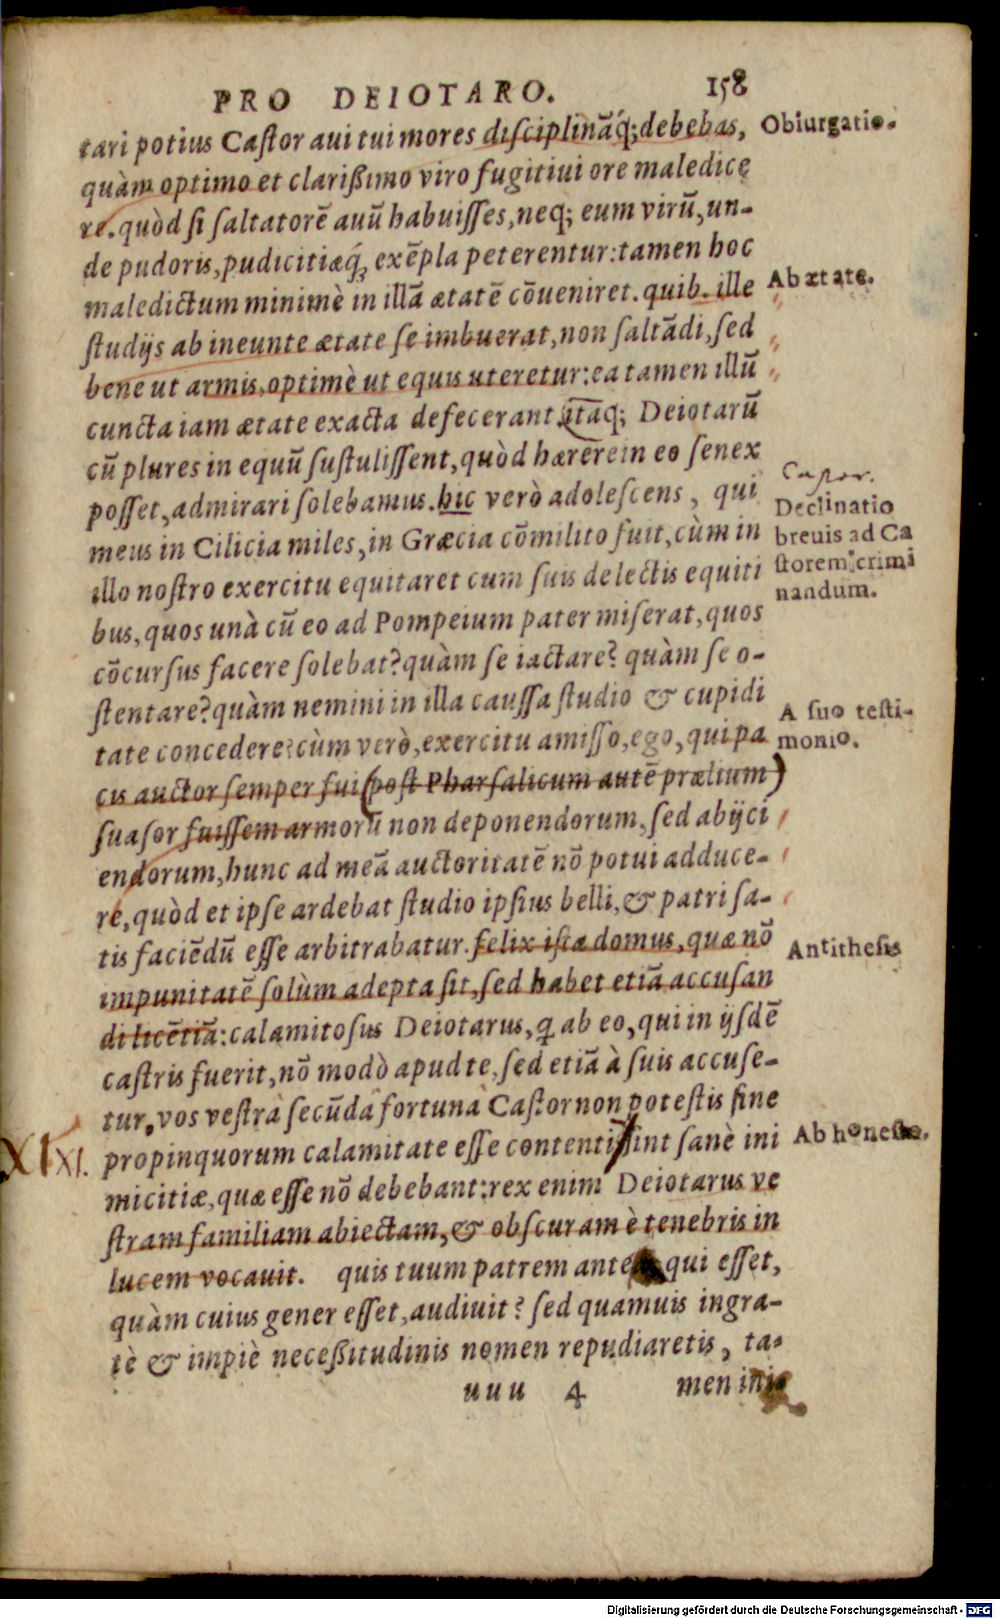 PRO DEIOTARO. 158
tari potius Castor aui tui mores disciplinãq́; debebas,
Obiurgatio.
quàm optimo et clarißimo viro fugitiui ore maledice
re. quòd si saltatorẽ auũ habuisses, neq; eum virũ, un-
de pudoris, pudicitiæq́; exẽpla peterentur: tamen hoc
maledictum minimè in illã ætatẽ cõueniret. quib. ille
Ab ætate.
studijs ab ineunte ætate se imbuerat, non saltãdi, sed
bene ut armis, optimè ut equis uteretur: ea tamen illũ
cuncta iam ætate exacta defecerant. itaq; Deiotarũ
cũ plures in equũ sustulissent, quòd hærere in eo senex
Castor.
posset, admirari solebamus. hic verò adolescens, qui
Declinatio
meus in Cilicia miles, in Græcia cõmilito fuit, cùm in
breuis ad Ca
illo nostro exercitu equitaret cum suis delectis equiti
storem crimi
nandum.
bus, quos unà cũ eo ad Pompeium pater miserat, quos
cõcursus facere solebat? quàm se iactare? quàm se o-
stentare? quàm nemini in illa caussa studio & cupidi
A suo testi-
tate concedere? cùm verò, exercitu amisso, ego, qui pa
monio.
cis auctor semper fui (post Pharsalicum autẽ prælium)
suasor fuissem armorũ non deponendorum, sed abijci
endorum, hunc ad meã auctoritatẽ nõ potui adduce-
re, quòd et ipse ardebat studio ipsius belli, & patri sa-
tis faciẽdũ esse arbitrabatur. felix ista domus, quæ nõ
Antithesis
impunitatẽ solùm adepta sit, sed habet etiã accusan
di licẽtiã: calamitosus Deiotarus, q ab eo, qui in ijsdẽ
castris fuerit, nõ modò apud te, sed etiã à suis accuse-
tur. vos vestrã secũdã fortunã Castor non potestis sine
XI XI. propinquorum calamitate esse contenti? sint sanè ini
Ab honesto.
micitiæ, quæ esse nõ debebant: rex enim Deiotarus ve
stram familiam abiectam, & obscuram è tenebris in
lucem vocauit. quis tuum patrem antea qui esset,
quàm cuius gener esset, audiuit? sed quamuis ingra-
tè & impiè neceßitudinis nomen repudiaretis, ta-
uuu 4 men ini
Digitalisierung gefördert durch die Deutsche Forschungsgemeinschaft - DFG